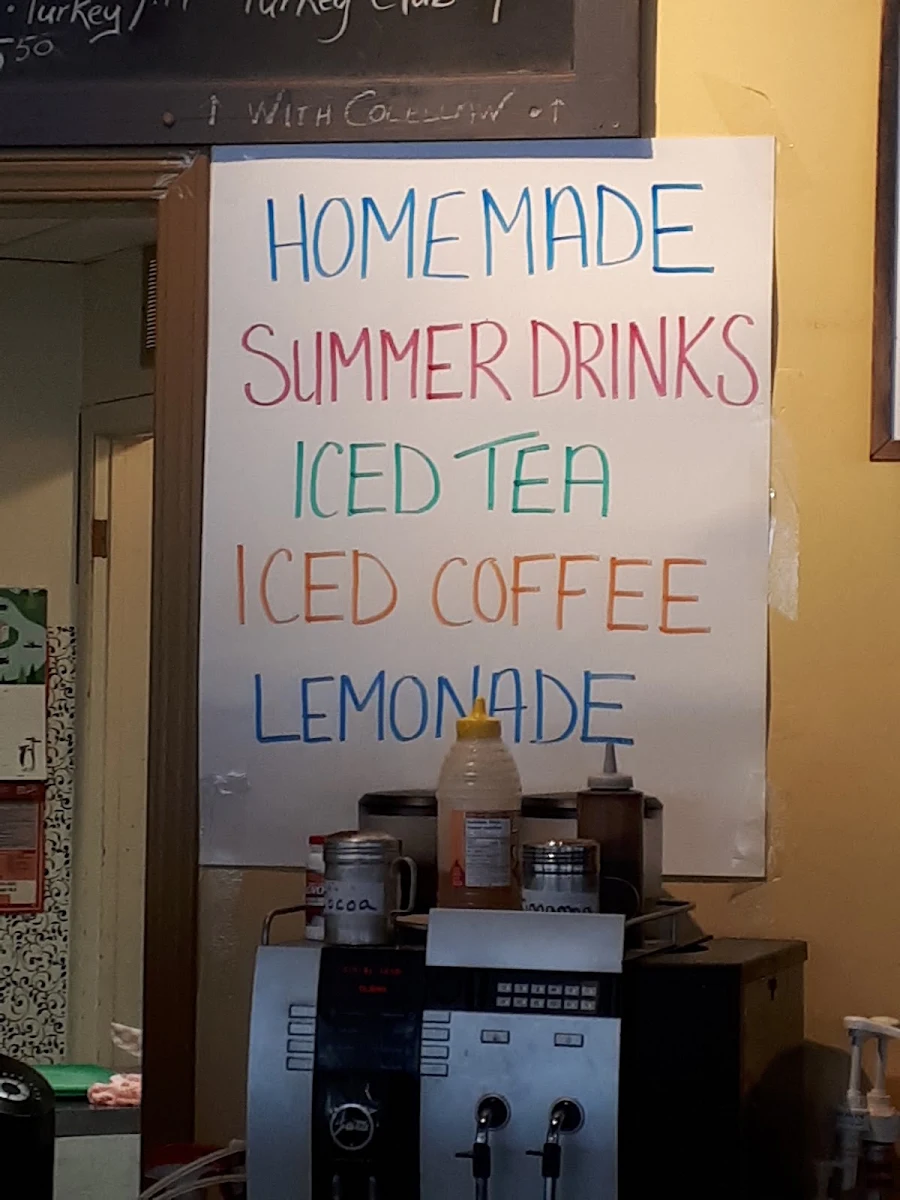 Turkey Turkey Club
5.50
↑ WITH COLESLAW • ↑
HOMEMADE
SUMMER DRINKS
ICED TEA
ICED COFFEE
LEMONADE
cocoa
Cinnamon